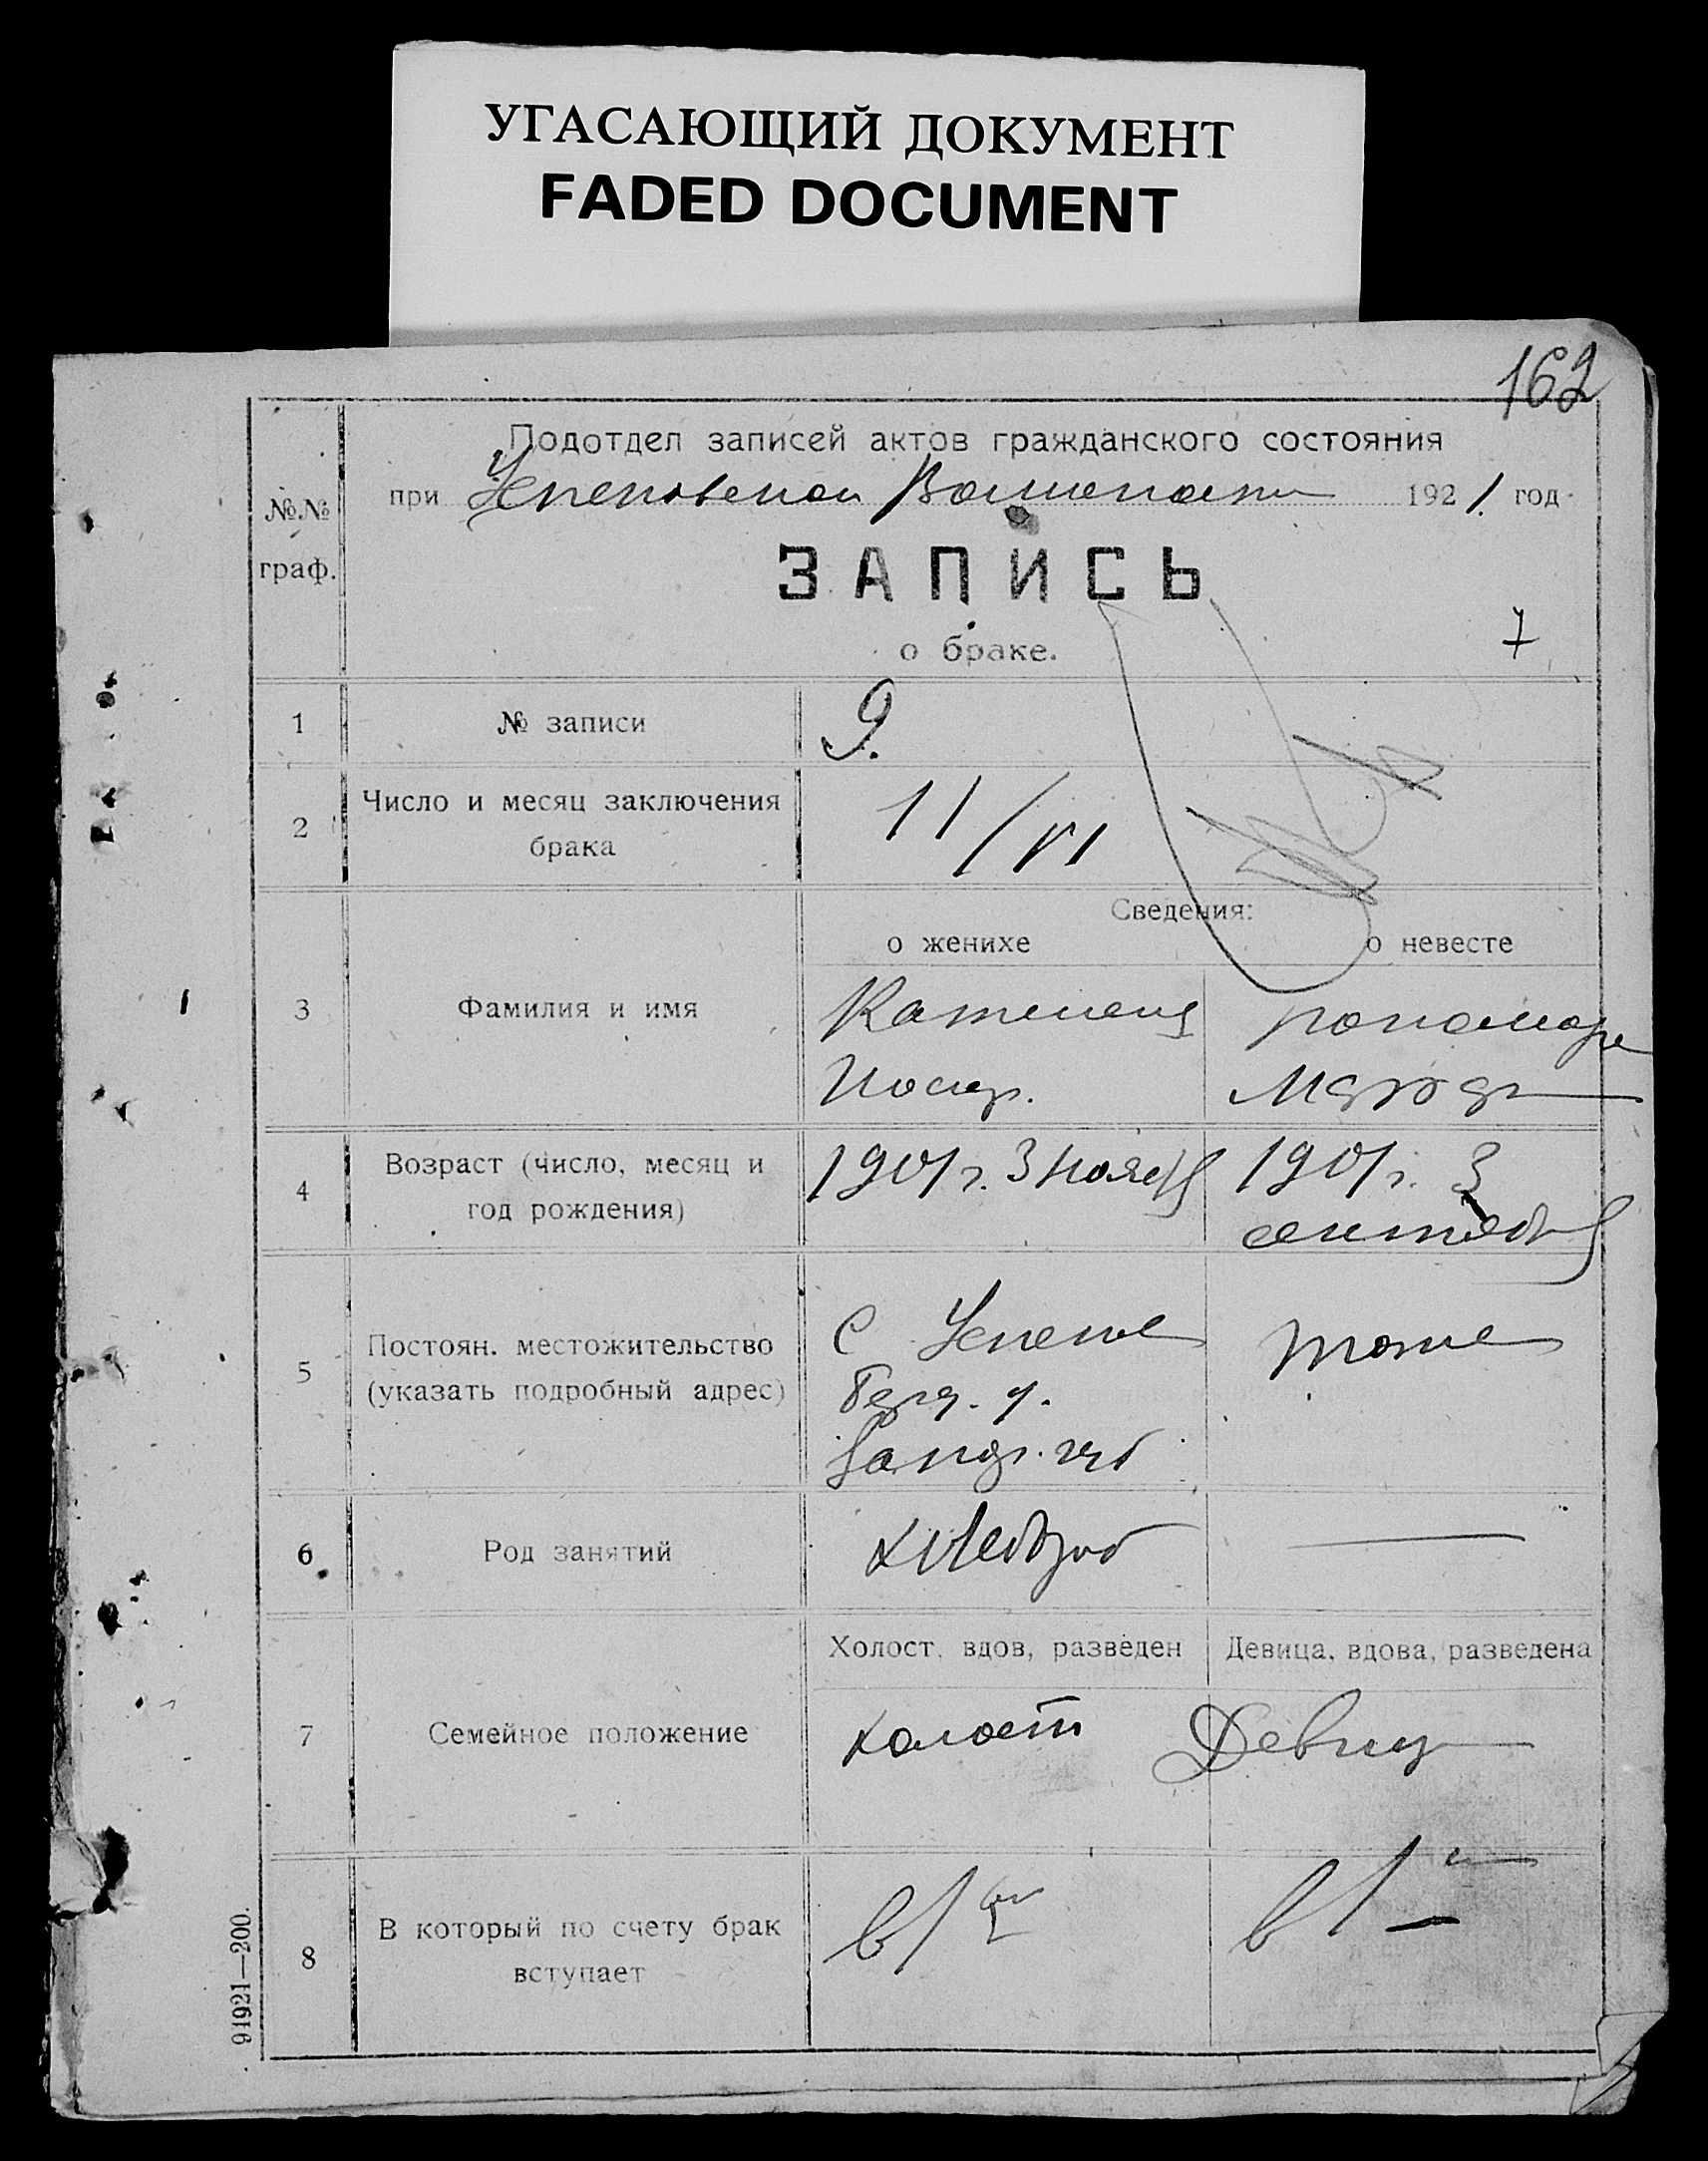 УГАСАЮЩИЙ ДОКУМЕНТ
FADED DOCUMENT
162
№№ граф.
Подотдел записей актов гражданского состояния
при 1921. год
ЗАПИСЬ
о браке.
7
1 № записи 9.
2 Число и месяц заключения брака 11/VI
Сведения:
о женихе о невесте
3 Фамилия и имя
4 Возраст (число, месяц и год рождения) 1901 г. 3 ноября 1901 г. 3 сентября
5 Постоян. местожительство (указать подробный адрес) с тоже
6 Род занятий хлебороб —
Холост, вдов, разведен Девица, вдова, разведена
7 Семейное положение холост Девица
8 В который по счету брак вступает в 1 в 1
91921—200.